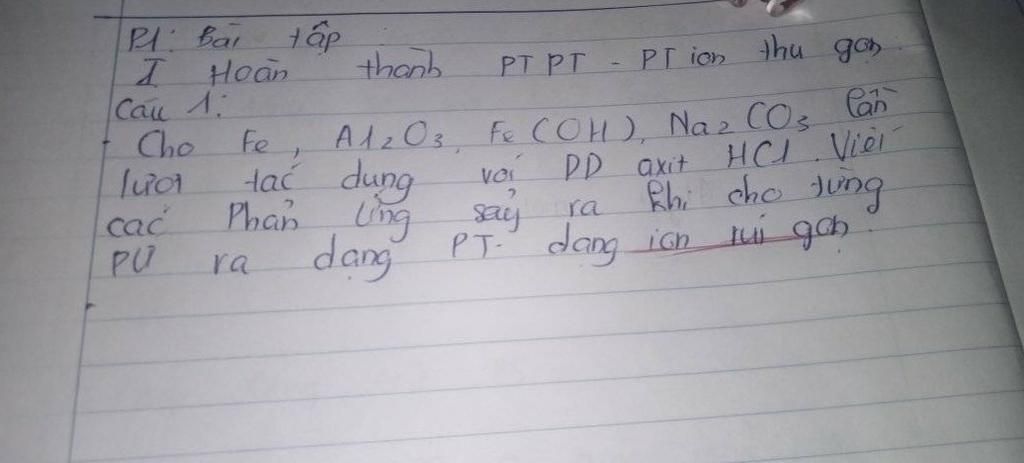 P1: Bài tập
I Hoàn thành PTPT - PT ion thu gọn
Câu 1:
Cho Fe, Al2O3, Fe(OH), Na2CO3 lần
lượt tác dụng với DD axit HCl. Viết
các Phản ứng sảy ra khi cho từng
PƯ ra dạng PT- dạng ion rút gọn.